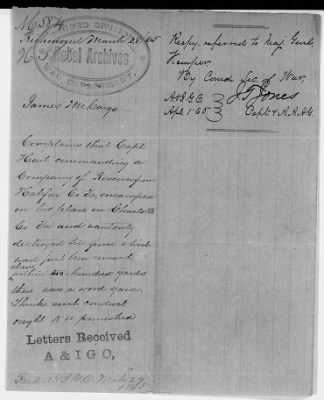 M 584
RECORD DIVISION
Rebel Archives
WAR DEPARTMENT
Richmond March 28 /65
James McCargo
Complains that Capt
Hart commanding a
Company of Reserves from
Halifax Co Va, encamped
on his place in Charlotte
Co Va and wantonly
destroyed his fence which
had just been renewed
altho
within two hundred yards
there was a wood yard.
Thinks such conduct
ought to be punished
Letters Received
A & I G O,
Recd A & I G O Mch 29
1865
Respy. referred to Maj Genl.
Kemper
By Comd. Sec of War,
J W Jones
A & I G O
Apl 1 65
Capt & A.A.G.